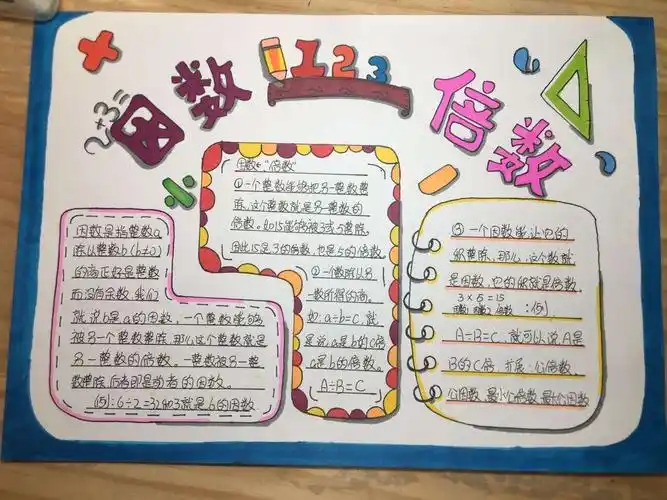 因数
123
倍数
2+3=
因数是指整数a
除以整数b(b≠0)
的商正好是整数
而没有余数，我们
就说b是a的因数，一个整数能够
被另一个整数整除，那么这个整数就是
另一整数的倍数。一整数被另一整
数整除，后者即是前者的因数。
例：6÷2=3 2和3就是6的因数
因数与“倍数”
①一个整数能够把另一整数整
除，这个整数就是另一整数的
倍数。如15能够被3或5整除，
因此15是3的倍数，也是5的倍数
②一个数除以另
一数所得的商。
如:a÷b=c，就
是说，a是b的c倍
a是b的倍数。
A÷B=C
③一个因数能让它的
积整除，那么，这个数就
是因数，它的积就是倍数
3×5=15
因数 因数 倍数 :例
A÷B=C，就可以说A是
B的C倍 扩展：公倍数，
公因数，最小公倍数，最大公因数